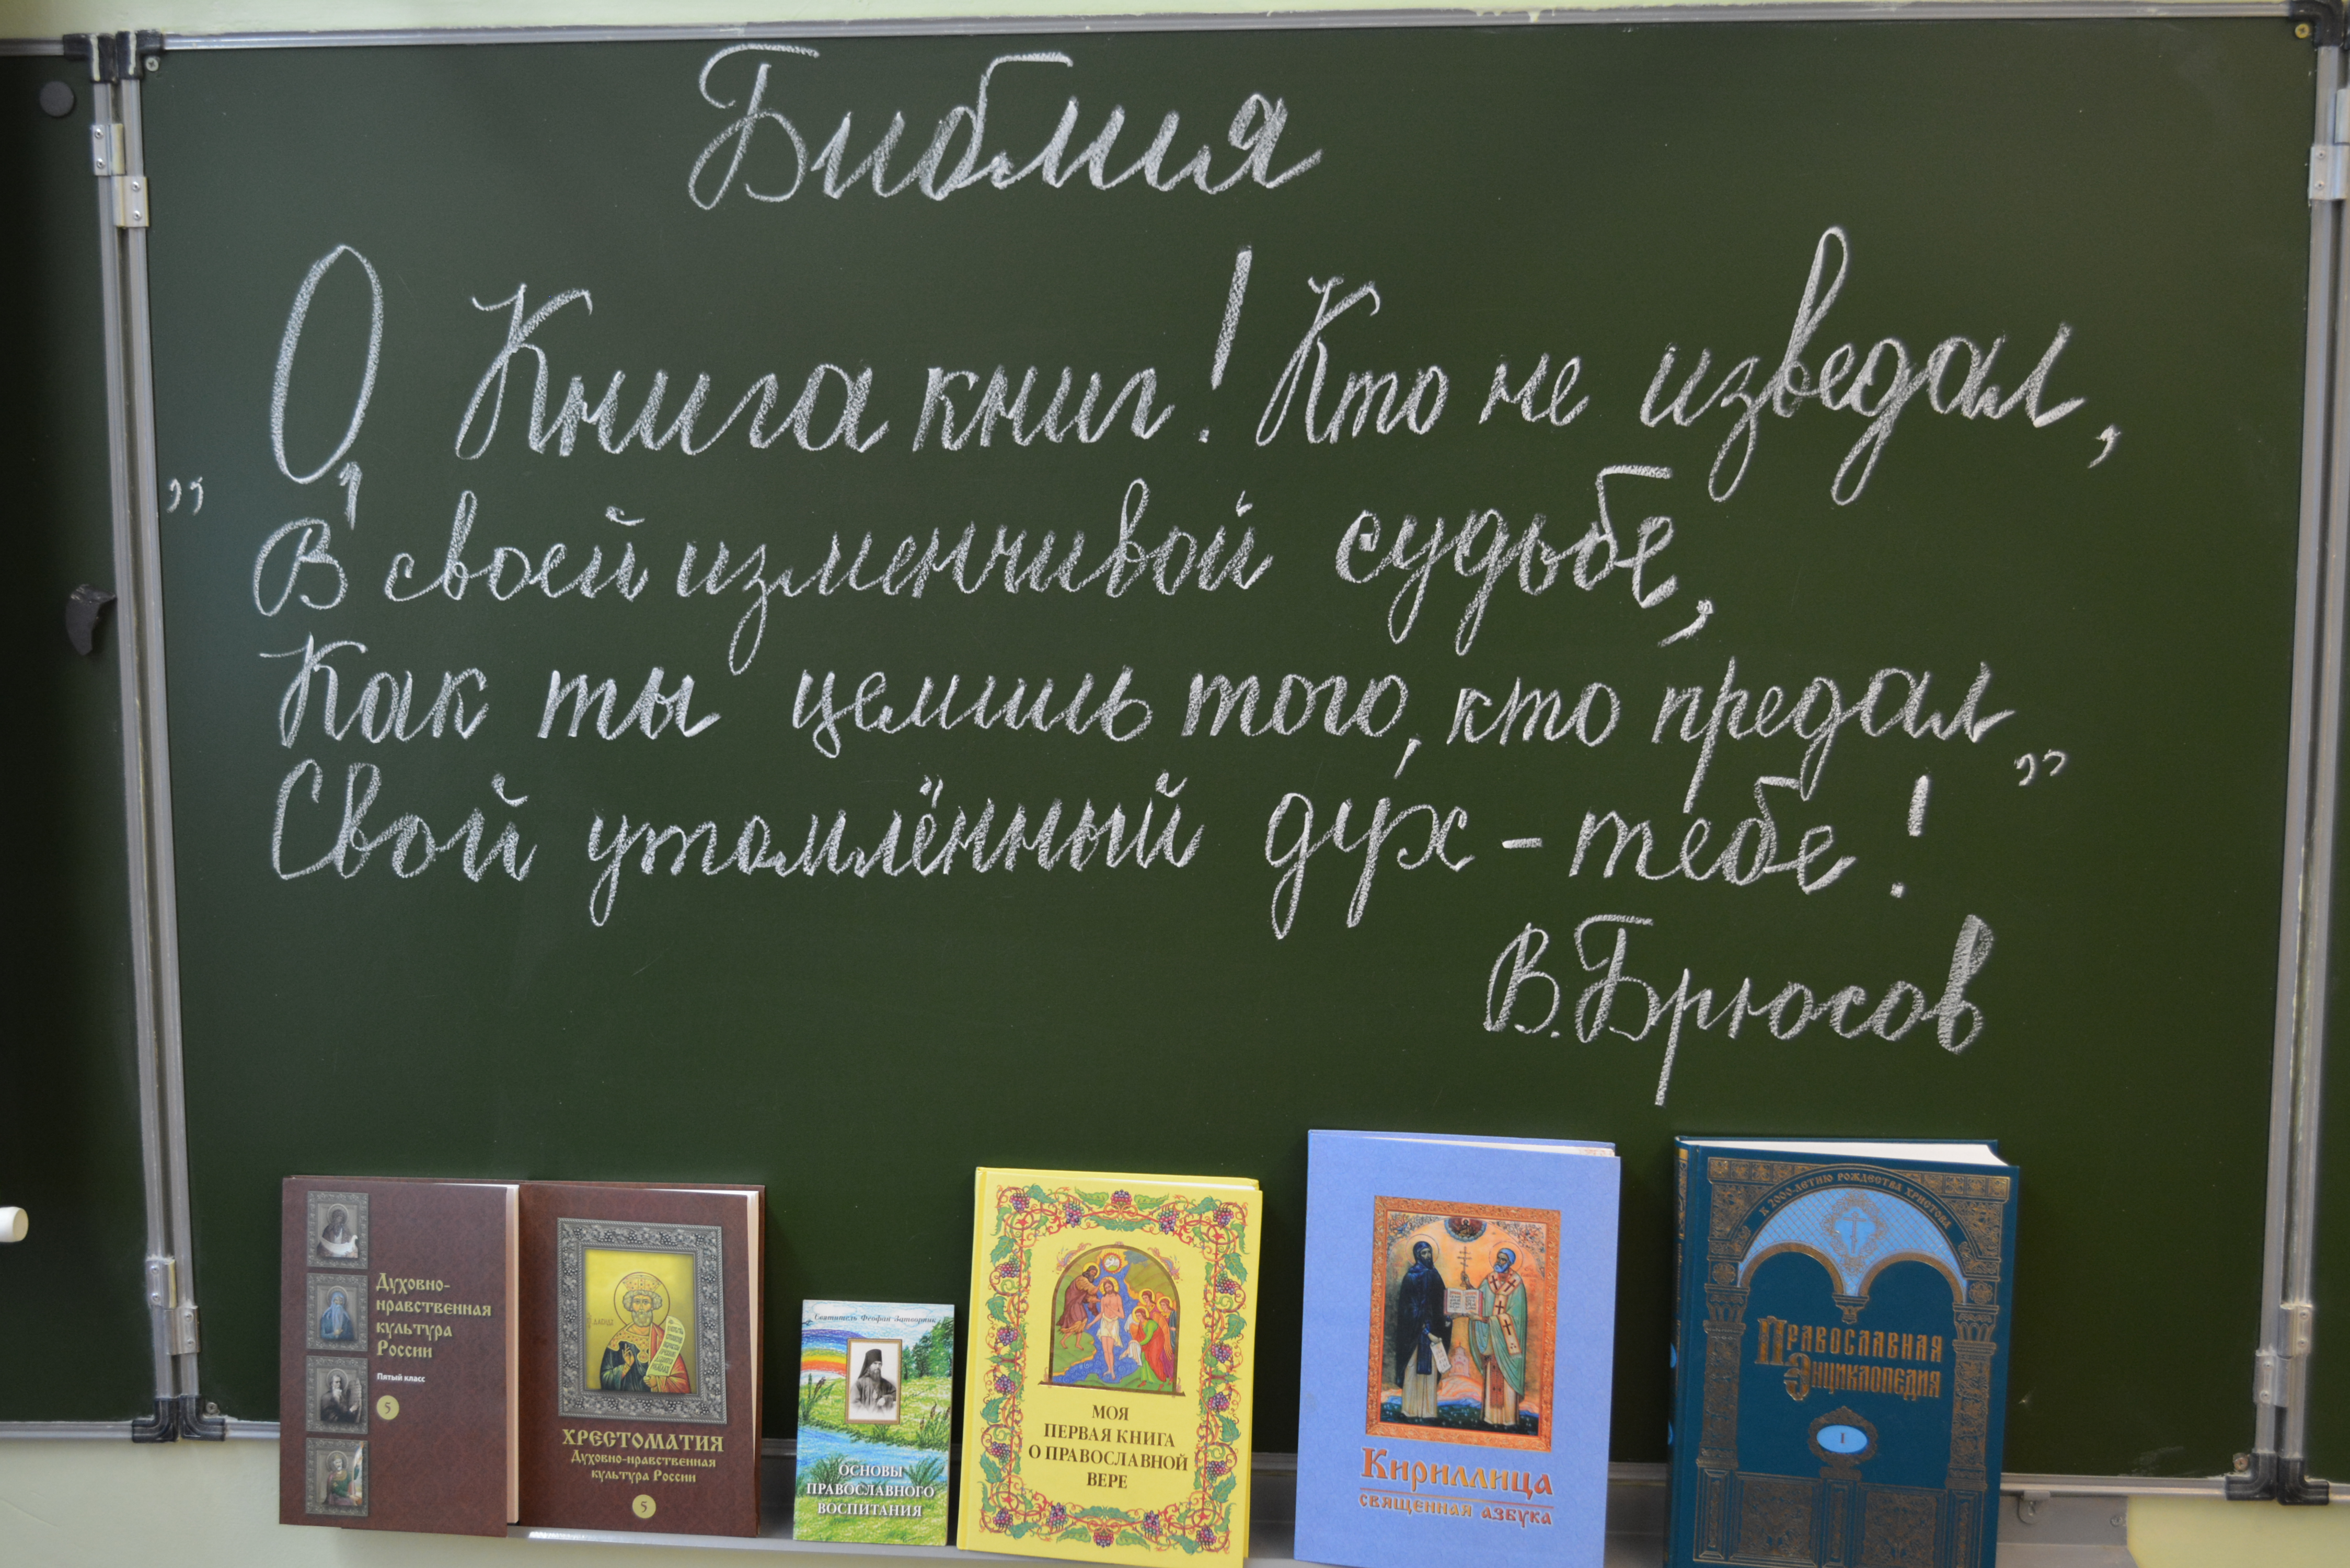 Библия
„О, Книга книг! Кто не изведал,
В своей изменчивой судьбе,
Как ты целишь того, кто предал
Свой утомлённый дух - тебе!”
В. Брюсов
Духовно-
нравственная
культура
России
Пятый класс
5
ХРЕСТОМАТИЯ
Духовно-нравственная
культура России
5
Святитель Феофан Затворник
ОСНОВЫ
ПРАВОСЛАВНОГО
ВОСПИТАНИЯ
МОЯ
ПЕРВАЯ КНИГА
О ПРАВОСЛАВНОЙ
ВЕРЕ
Кириллица
священная азбука
К 2000-ЛЕТИЮ РОЖДЕСТВА ХРИСТОВА
Православная
Энциклопедия
I